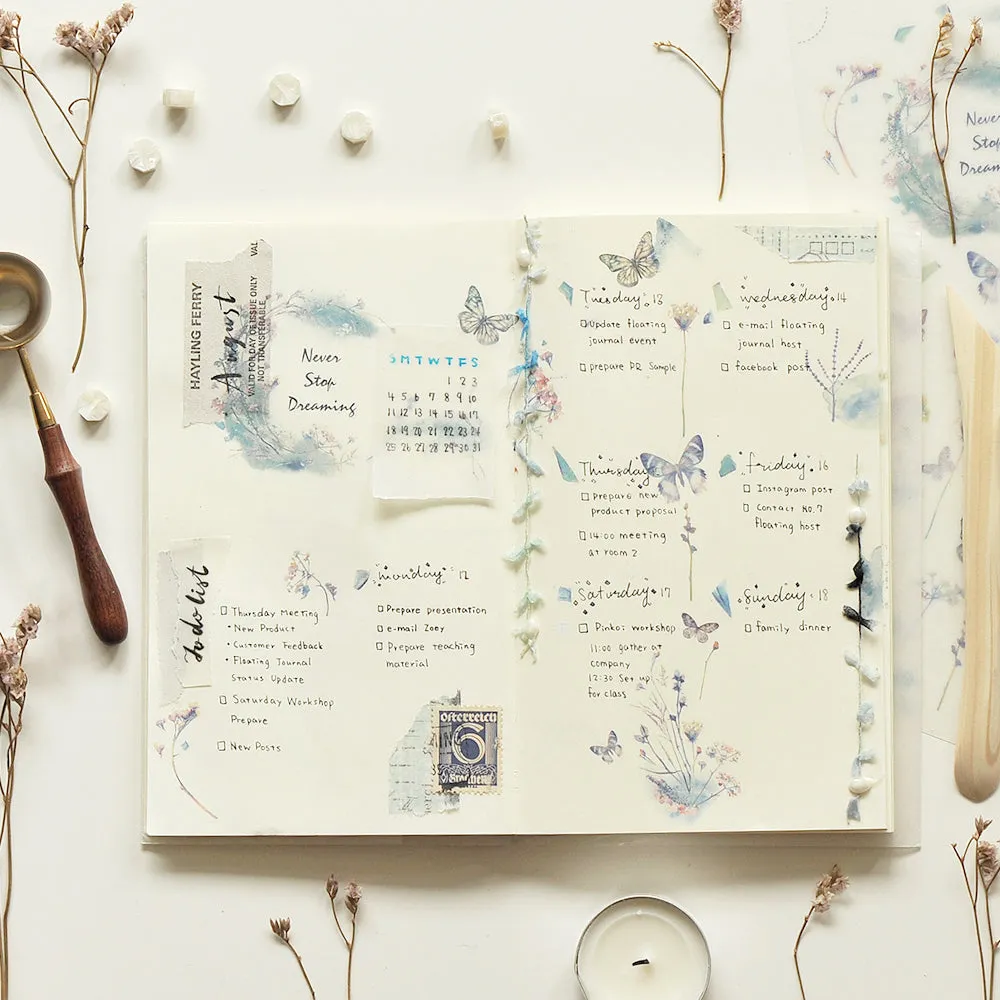 HAYLING FERRY
August
VALID FOR DAY OF ISSUE ONLY
NOT TRANSFERABLE
VAL
Never
Stop
Dreaming
S M T W T F S
1 2 3
4 5 6 7 8 9 10
11 12 13 14 15 16 17
18 19 20 21 22 23 24
25 26 27 28 29 30 31
To do list
Thursday Meeting
• New Product
• Customer Feedback
• Floating Journal
Status Update
Saturday Workshop
Prepare
New Posts
monday 12
Prepare presentation
e-mail Zoey
Prepare teaching
material
österreich
6
Tuesday 13
Update floating
journal event
prepare PR Sample
wednesday 14
e-mail floating
journal host
facebook post
Thursday
Prepare new
product proposal
14:00 meeting
at room 2
friday 16
Instagram post
Contact No.7
floating host
Saturday 17
Pinkoi workshop
11:00 gather at
company
12:30 Set up
for class
Sunday 18
family dinner
Never
Stop
Dream